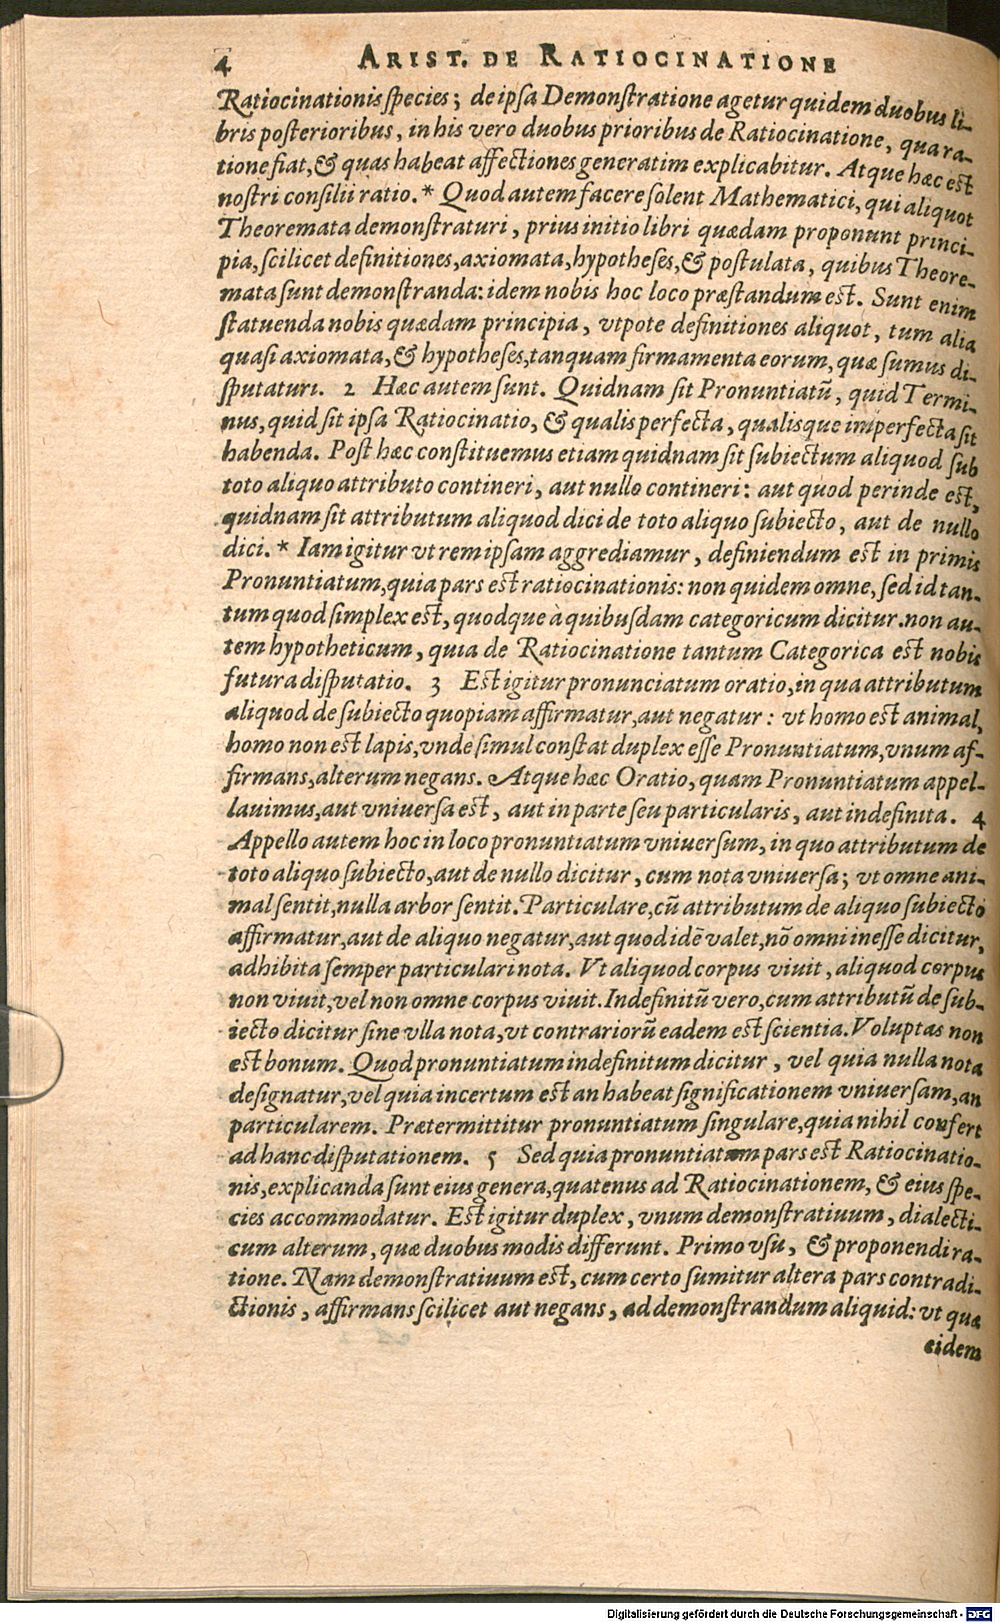 4 ARIST. DE RATIOCINATIONE
Ratiocinationis ſpecies; de ipſa Demonſtratione agetur quidem duobus li-
bris poſterioribus, in his vero duobus prioribus de Ratiocinatione, qua ra-
tione fiat, & quas habeat affectiones generatim explicabitur. Atque hæc est
nostri consilii ratio. * Quod autem facere ſolent Mathematici, qui aliquot
Theoremata demonſtraturi, prius initio libri quædam proponunt princi-
pia, ſcilicet definitiones, axiomata, hypotheſes, & poſtulata, quibus Theore-
mata ſunt demonſtranda: idem nobis hoc loco præſtandum eſt. Sunt enim
ſtatuenda nobis quædam principia, vtpote definitiones aliquot, tum alia
quaſi axiomata, & hypotheſes, tanquam firmamenta eorum, quæ ſumus di-
ſputaturi. 2 Hæc autem ſunt. Quidnam ſit Pronuntiatũ, quid Termi-
nus, quid ſit ipſa Ratiocinatio, & qualis perfecta, qualisque imperfecta ſit
habenda. Poſt hæc conſtituemus etiam quidnam ſit ſubiectum aliquod ſub
toto aliquo attributo contineri, aut nullo contineri: aut quod perinde eſt,
quidnam ſit attributum aliquod dici de toto aliquo ſubiecto, aut de nullo
dici. * Iam igitur vt rem ipſam aggrediamur, definiendum eſt in primis
Pronuntiatum, quia pars eſt ratiocinationis: non quidem omne, ſed id tan-
tum quod ſimplex eſt, quodque à quibuſdam categoricum dicitur. non au-
tem hypotheticum, quia de Ratiocinatione tantum Categorica eſt nobis
futura diſputatio. 3 Eſt igitur pronunciatum oratio, in qua attributum
aliquod de ſubiecto quopiam affirmatur, aut negatur: vt homo eſt animal,
homo non eſt lapis, vnde ſimul conſtat duplex eſſe Pronuntiatum, vnum af-
firmans, alterum negans. Atque hæc Oratio, quam Pronuntiatum appel-
lauimus, aut vniuerſa eſt, aut in parte ſeu particularis, aut indefinita. 4
Appello autem hoc in loco pronuntiatum vniuerſum, in quo attributum de
toto aliquo ſubiecto, aut de nullo dicitur, cum nota vniuerſa; vt omne ani-
mal ſentit, nulla arbor ſentit. Particulare, cũ attributum de aliquo ſubiecto
affirmatur, aut de aliquo negatur, aut quod idẽ valet, nõ omni ineſſe dicitur,
adhibita ſemper particulari nota. Vt aliquod corpus viuit, aliquod corpus
non viuit, vel non omne corpus viuit. Indefinitũ vero, cum attributũ de ſub-
iecto dicitur ſine vlla nota, vt contrariorũ eadem eſt ſcientia. Voluptas non
eſt bonum. Quod pronuntiatum indefinitum dicitur, vel quia nulla nota
deſignatur, vel quia incertum eſt an habeat ſignificationem vniuerſam, an
particularem. Prætermittitur pronuntiatum ſingulare, quia nihil confert
ad hanc diſputationem. 5 Sed quia pronuntiatum pars eſt Ratiocinatio-
nis, explicanda ſunt eius genera, quatenus ad Ratiocinationem, & eius ſpe-
cies accommodatur. Eſt igitur duplex, vnum demonſtratiuum, dialecti-
cum alterum, quæ duobus modis differunt. Primo vſu, & proponendi ra-
tione. Nam demonſtratiuum eſt, cum certo ſumitur altera pars contradi-
ctionis, affirmans ſcilicet aut negans, ad demonſtrandum aliquid: vt quæ
eidem
Digitalisierung gefördert durch die Deutsche Forschungsgemeinschaft - DFG